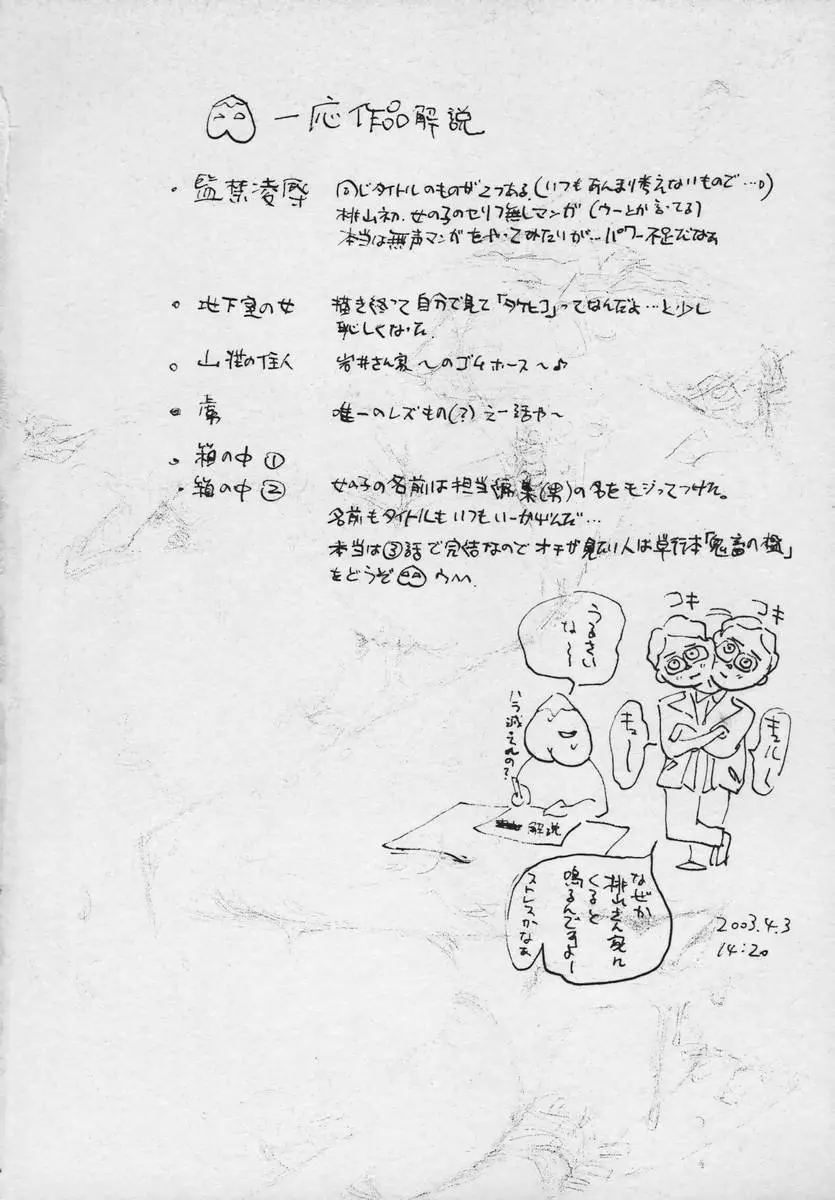 一応作品解説
・監禁凌辱 同じタイトルのものが2つある。(いつもあんまり考えないもので…。)
桃山初、女の子のセリフ無しマンガ(ウーとか言ってる)
本当は無声マンガをやってみたいが…パワー不足だなぁ
・地下室の女 描き終って自分で見て「タケヒコ」ってなんだよ…と少し
恥しくなった
・山荘の住人 岩井さん家〜のゴムホース〜♪
・ 唯一のレズもの(?)えー話や〜
・箱の中①
・箱の中② 女の子の名前は担当編集(男)の名をモジってつけた。
名前もタイトルもいつもいーかげんだ…
本当は③話で完結なのでオチが見たい人は単行本「鬼畜の檻」
をどうぞ ウハハ
うるさい
な〜〜
ハラ減ってんの?
コキ
コキ
キュー
キュルルー
解説
なぜか
桃山さん家に
くると
鳴るんですよー
ストレスかなぁ
2003.4.3
14:20